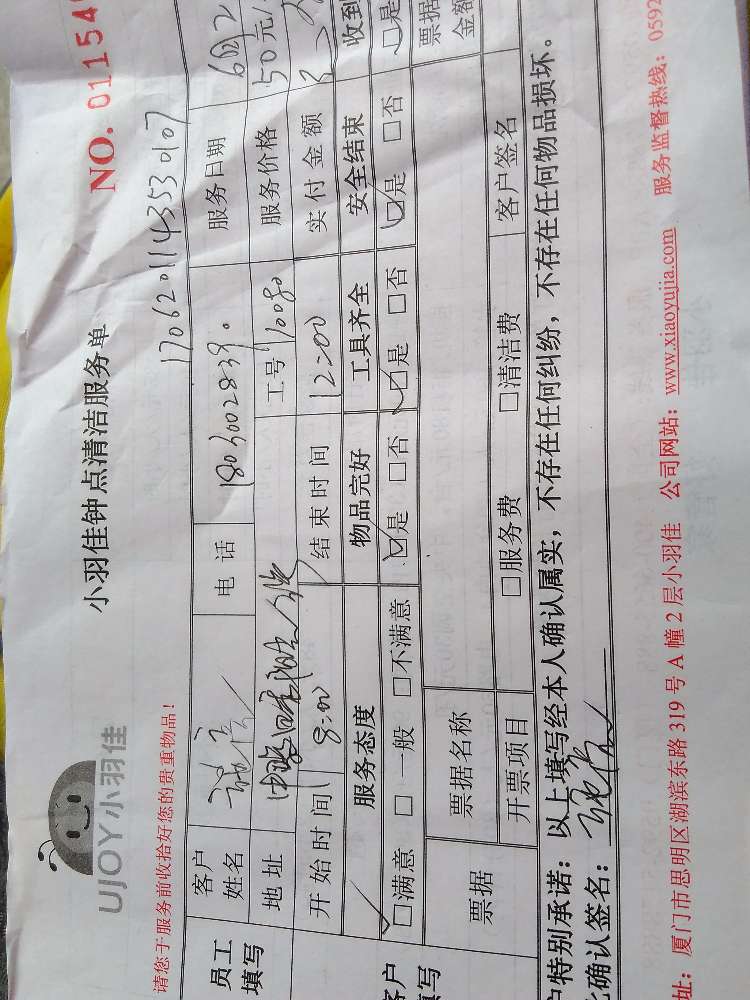 UJOY小羽佳
小羽佳钟点清洁服务单
NO. 01154
请您于服务前收拾好您的贵重物品!
1706201143530107
员工
填写
客户
姓名
电话
1803002839.
服务日期
地址
工号
10080
服务价格
50元/
开始时间
8:00
结束时间
12:00
实付金额
服务态度
物品完好
工具齐全
安全结束
收到
☑满意 □一般 □不满意
☑是 □否
☑是 □否
☑是 □否
☑是
票据
票据名称
票据
金额
开票项目
□服务费
□清洁费
客户签名
户特别承诺:以上填写经本人确认属实,不存在任何纠纷,不存在任何物品损坏。
确认签名:
址:厦门市思明区湖滨东路 319 号 A 幢 2 层小羽佳 公司网站:www.xiaoyujia.com 服务监督热线:0592